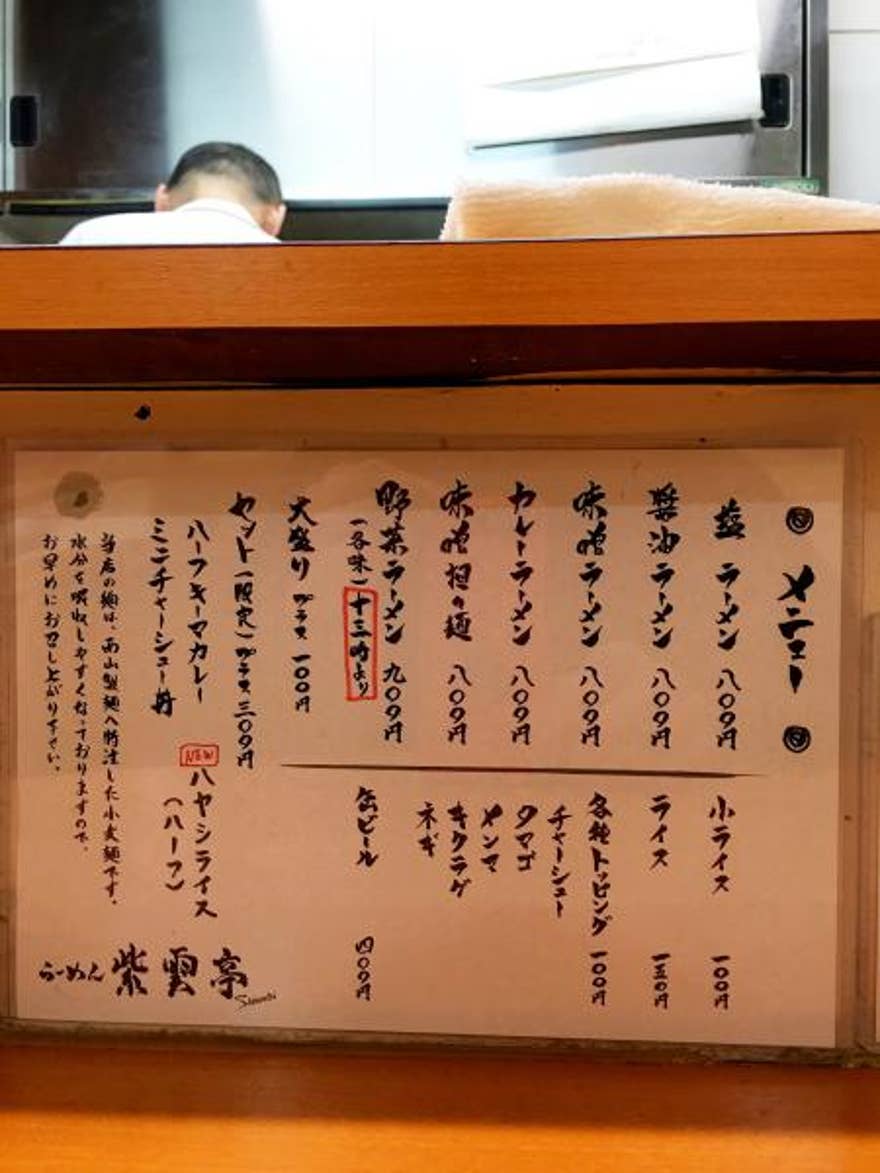 メニュー
塩ラーメン 八〇〇円
醤油ラーメン 八〇〇円
味噌ラーメン 八〇〇円
カレーラーメン 八〇〇円
味噌担々麺 八〇〇円
野菜ラーメン 九〇〇円
(各味)十三時より
大盛り プラス 一〇〇円
セット(限定)プラス 三〇〇円
ハーフキーマカレー
ミニチャーシュー丼
NEW ハヤシライス
(ハーフ)
小ライス 一〇〇円
ライス 一五〇円
各種トッピング 一〇〇円
チャーシュー
タマゴ
メンマ
キクラゲ
ネギ
缶ビール 四〇〇円
当店の麺は、西山製麺へ特注した小麦麺です。
水分を吸収しやすくなっておりますので、
お早めにお召し上がり下さい。
らーめん 紫雲亭